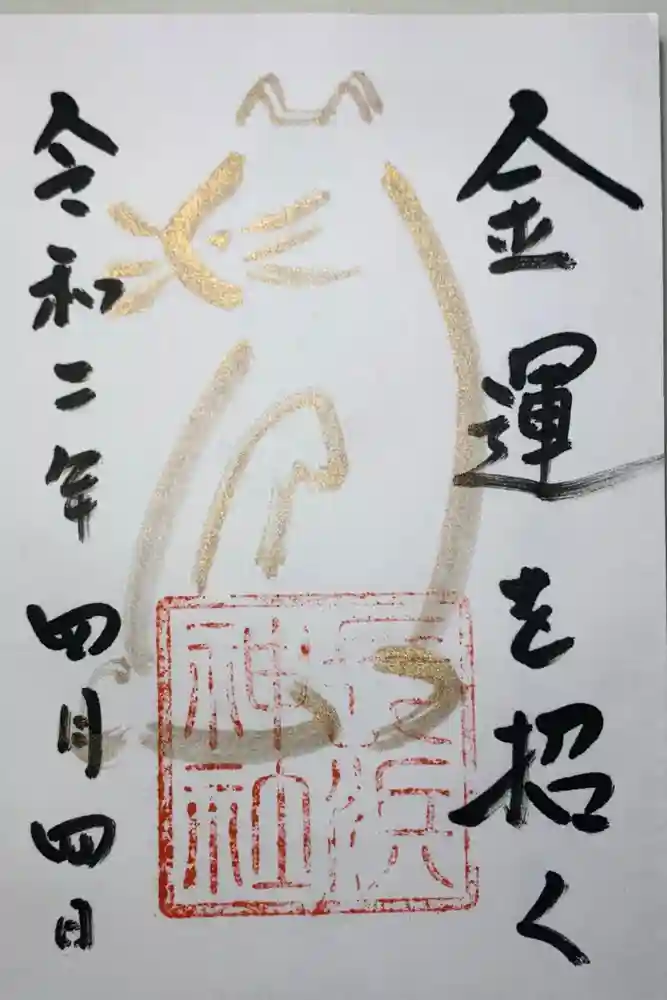 金運を招く
長浜
神社
令和二年四月四日